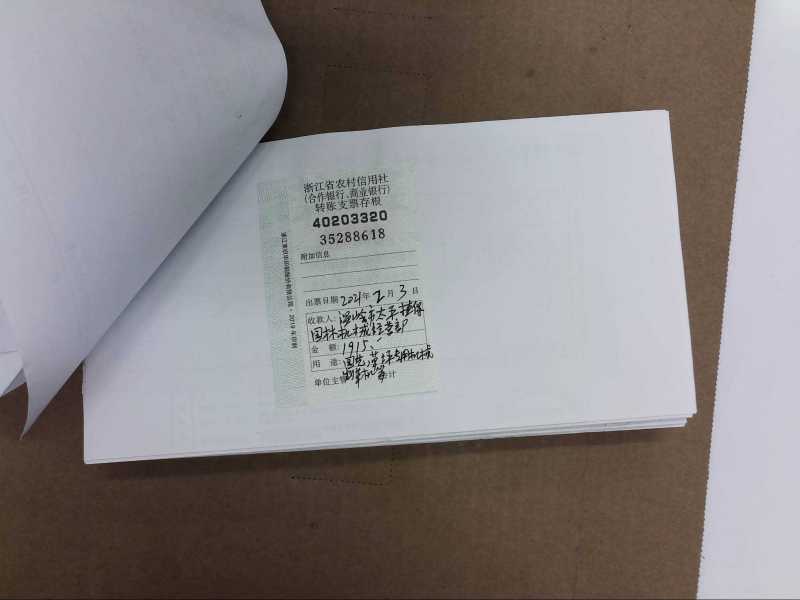 浙江省农村信用社
(合作银行、商业银行)
转账支票存根
40203320
35288618
附加信息
出票日期 2021年 2月 3日
收款人: 温岭市太平捷保
园林机械经营部
金 额: 1915.—
用 途:
单位主管 会计